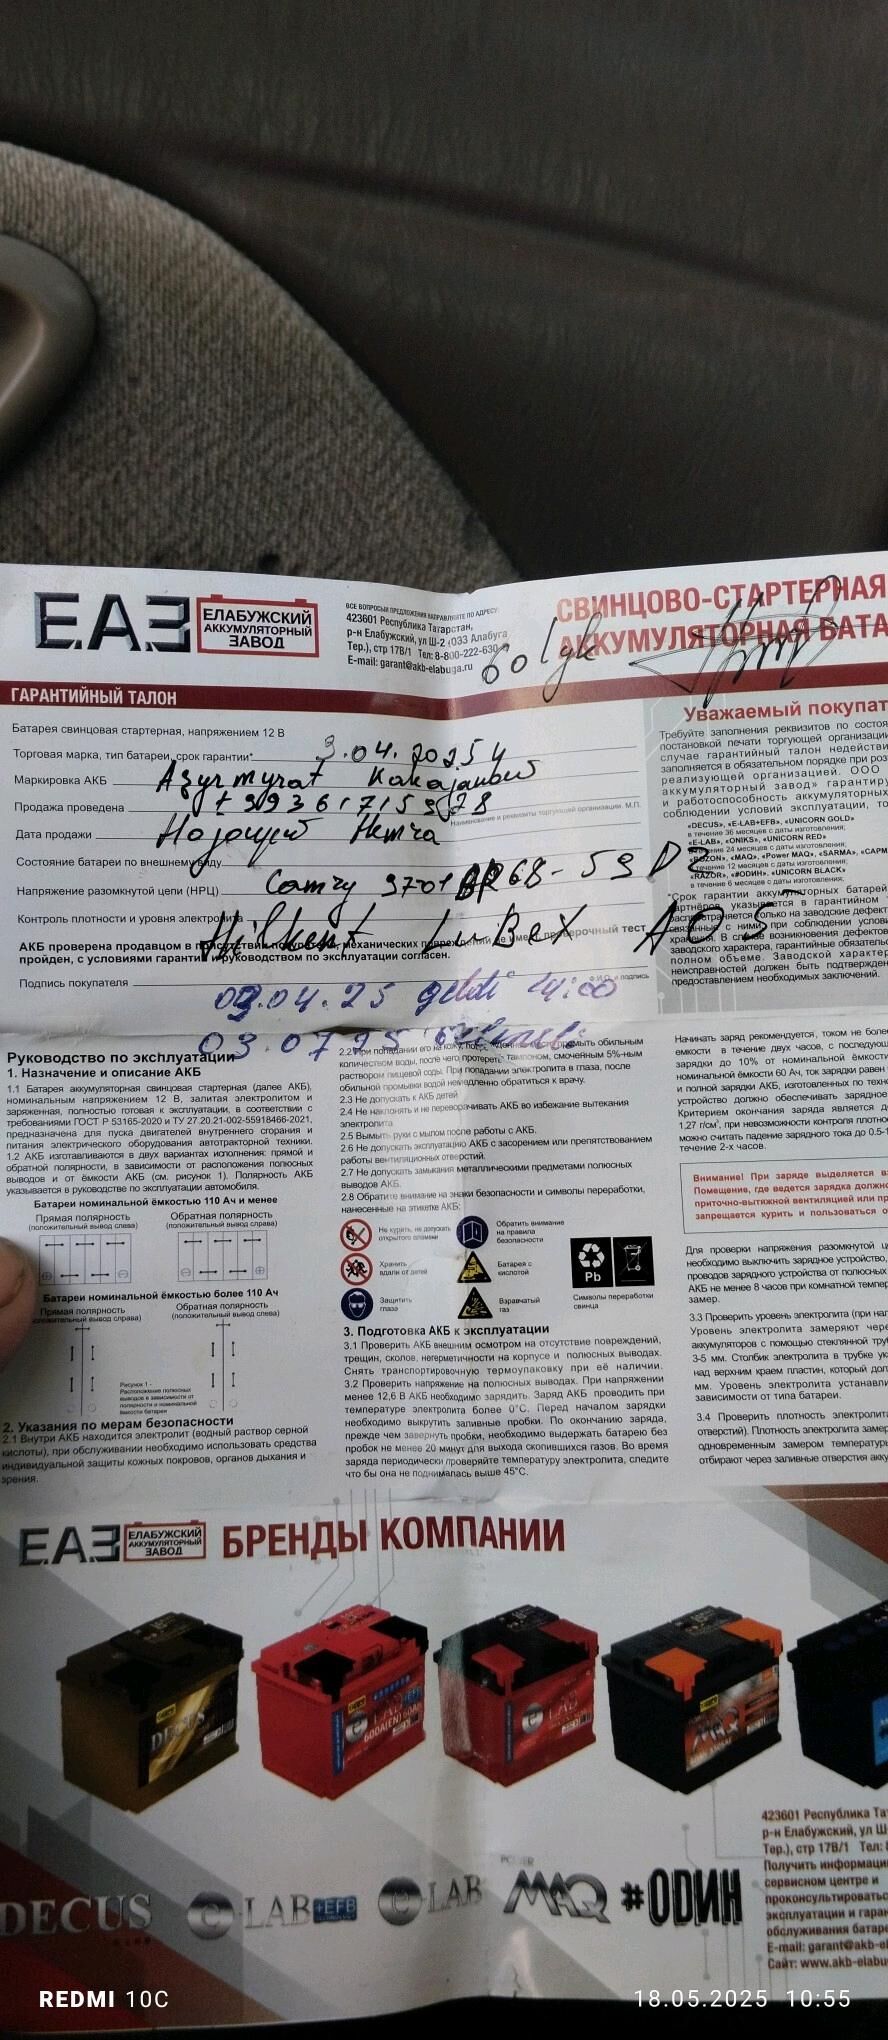 ЕАЗ
ЕЛАБУЖСКИЙ
АККУМУЛЯТОРНЫЙ
ЗАВОД
ВСЕ ВОПРОСЫ И ПРЕДЛОЖЕНИЯ НАПРАВЛЯЙТЕ ПО АДРЕСУ:
423601 Республика Татарстан,
р-н Елабужский, ул Ш-2 (ОЭЗ Алабуга
Тер.), стр 17В/1 Тел: 8-800-222-630
E-mail: garant@akb-elabuga.ru
СВИНЦОВО-СТАРТЕРНАЯ
АККУМУЛЯТОРНАЯ БАТА
60lyk
ГАРАНТИЙНЫЙ ТАЛОН
Батарея свинцовая стартерная, напряжением 12 В
Торговая марка, тип батареи, срок гарантии*
3.04.2025
Маркировка АКБ
Agyrmyrat
Продажа проведена
Наименование и реквизиты торгующей организации. М.П.
Дата продажи
Состояние батареи по внешнему виду
Напряжение разомкнутой цепи (НРЦ)
Camry 3701 68-59 D3
Контроль плотности и уровня электролита
Hilkent LuBeX AOS
АКБ проверена продавцом в присутствии покупателя, механических повреждений не имеет, проверочный тест
пройден, с условиями гарантии и руководством по эксплуатации согласен.
Подпись покупателя
Ф.И.О. и подпись
03.04.25 geldi 14:00
03.0725
Уважаемый покупат
Требуйте заполнения реквизитов по состоя
постановкой печати торгующей организаци
случае гарантийный талон недействи
заполняется в обязательном порядке при роз
реализующей организацией. ООО
аккумуляторный завод» гарантиру
и работоспособность аккумуляторных
соблюдении условий эксплуатации, то
«DECUS», «E-LAB+EFB», «UNICORN GOLD»
в течение 36 месяцев с даты изготовления;
«E-LAB», «ONIKS», «UNICORN RED»
в течение 24 месяцев с даты изготовления;
«BOZON», «MAQ», «Power MAQ», «SARMA», «САРМ
в течение 12 месяцев с даты изготовления;
«RAZOR», «#ОДИН», «UNICORN BLACK»
в течение 6 месяцев с даты изготовления;
*Срок гарантии аккумуляторных батарей
партнёров указывается в гарантийном
распространяется только на заводские дефект
связанные с ними при соблюдении услови
хранения. В случае возникновения дефектов
заводского характера, гарантийные обязательс
полном объеме. Заводской характер
неисправностей должен быть подтвержден
предоставлением необходимых заключений.
Руководство по эксплуатации
1. Назначение и описание АКБ
1.1 Батарея аккумуляторная свинцовая стартерная (далее АКБ),
номинальным напряжением 12 В, залитая электролитом и
заряженная, полностью готовая к эксплуатации, в соответствии с
требованиями ГОСТ Р 53165-2020 и ТУ 27.20.21-002-55918466-2021,
предназначена для пуска двигателей внутреннего сгорания и
питания электрического оборудования автотракторной техники.
1.2 АКБ изготавливаются в двух вариантах исполнения: прямой и
обратной полярности, в зависимости от расположения полюсных
выводов и от ёмкости АКБ (см. рисунок 1). Полярность АКБ
указывается в руководстве по эксплуатации автомобиля.
Батареи номинальной ёмкостью 110 Ач и менее
Прямая полярность
(положительный вывод слева)
Обратная полярность
(положительный вывод справа)
Батареи номинальной ёмкостью более 110 Ач
Прямая полярность
положительный вывод справа)
Обратная полярность
(положительный вывод слева)
Рисунок 1 -
Расположение полюсных
выводов в зависимости от
полярности и номинальной
ёмкости батареи
2. Указания по мерам безопасности
2.1 Внутри АКБ находится электролит (водный раствор серной
кислоты), при обслуживании необходимо использовать средства
индивидуальной защиты кожных покровов, органов дыхания и
зрения.
2.2 При попадании его на кожу,
количеством воды, после чего протереть тампоном, смоченным 5%-ным
раствором пищевой соды. При попадании электролита в глаза, после
обильной промывки водой немедленно обратиться к врачу.
2.3 Не допускать к АКБ детей
2.4 Не наклонять и не переворачивать АКБ во избежание вытекания
электролита
2.5 Вымыть руки с мылом после работы с АКБ.
2.6 Не допускать эксплуатацию АКБ с засорением или препятствованием
работы вентиляционных отверстий.
2.7 Не допускать замыкания металлическими предметами полюсных
выводов АКБ.
2.8 Обратите внимание на знаки безопасности и символы переработки,
нанесенные на этикетке АКБ:
Не курить, не допускать
открытого пламени
Обратить внимание
на правила
безопасности
Хранить
вдали от детей
Батарея с
кислотой
Защитить
глаза
Взрывчатый
газ
Pb
Символы переработки
свинца
3. Подготовка АКБ к эксплуатации
3.1 Проверить АКБ внешним осмотром на отсутствие повреждений,
трещин, сколов, негерметичности на корпусе и полюсных выводах.
Снять транспортировочную термоупаковку при её наличии.
3.2 Проверить напряжение на полюсных выводах. При напряжении
менее 12,6 В АКБ необходимо зарядить. Заряд АКБ проводить при
температуре электролита более 0°С. Перед началом зарядки
необходимо выкрутить заливные пробки. По окончанию заряда,
прежде чем завернуть пробки, необходимо выдержать батарею без
пробок не менее 20 минут для выхода скопившихся газов. Во время
заряда периодически проверяйте температуру электролита, следите
что бы она не поднималась выше 45°С.
Начинать заряд рекомендуется, током не более
емкости в течение двух часов, с последующ
зарядки до 10% от номинальной ёмкости
номинальной ёмкости 60 Ач, ток зарядки равен
и полной зарядки АКБ, изготовленных по техно
устройство должно обеспечивать зарядное
Критерием окончания заряда является до
1,27 г/см³, при невозможности контроля плотнос
можно считать падение зарядного тока до 0.5-1
течение 2-х часов.
Внимание! При заряде выделяется вз
Помещение, где ведется зарядка должно
приточно-вытяжной вентиляцией или пр
запрещается курить и пользоваться о
Для проверки напряжения разомкнутой ц
необходимо выключить зарядное устройство,
проводов зарядного устройства от полюсных
АКБ не менее 8 часов при комнатной темпер
замер.
3.3 Проверить уровень электролита (при нал
Уровень электролита замеряют чере
аккумуляторов с помощью стеклянной труб
3-5 мм. Столбик электролита в трубке ука
над верхним краем пластин, который дол
мм. Уровень электролита устанавли
зависимости от типа батареи.
3.4 Проверить плотность электролита
отверстий). Плотность электролита замер
одновременным замером температуры
отбирают через заливные отверстия акку
ЕАЗ
ЕЛАБУЖСКИЙ
АККУМУЛЯТОРНЫЙ
ЗАВОД
БРЕНДЫ КОМПАНИИ
DECUS
LAB +EFB
600A(EN) 60Ah
LAB
MAQ
DECUS
e LAB +EFB
e LAB
POWER MAQ
#ОДИН
423601 Республика Тат
р-н Елабужский, ул Ш
Тер.), стр 17В/1 Тел: 8
Получить информаци
сервисном центре и
проконсультироватьс
эксплуатации и гаран
обслуживания батаре
E-mail: garant@akb-el
Сайт: www.akb-elabu
REDMI 10C
18.05.2025 10:55